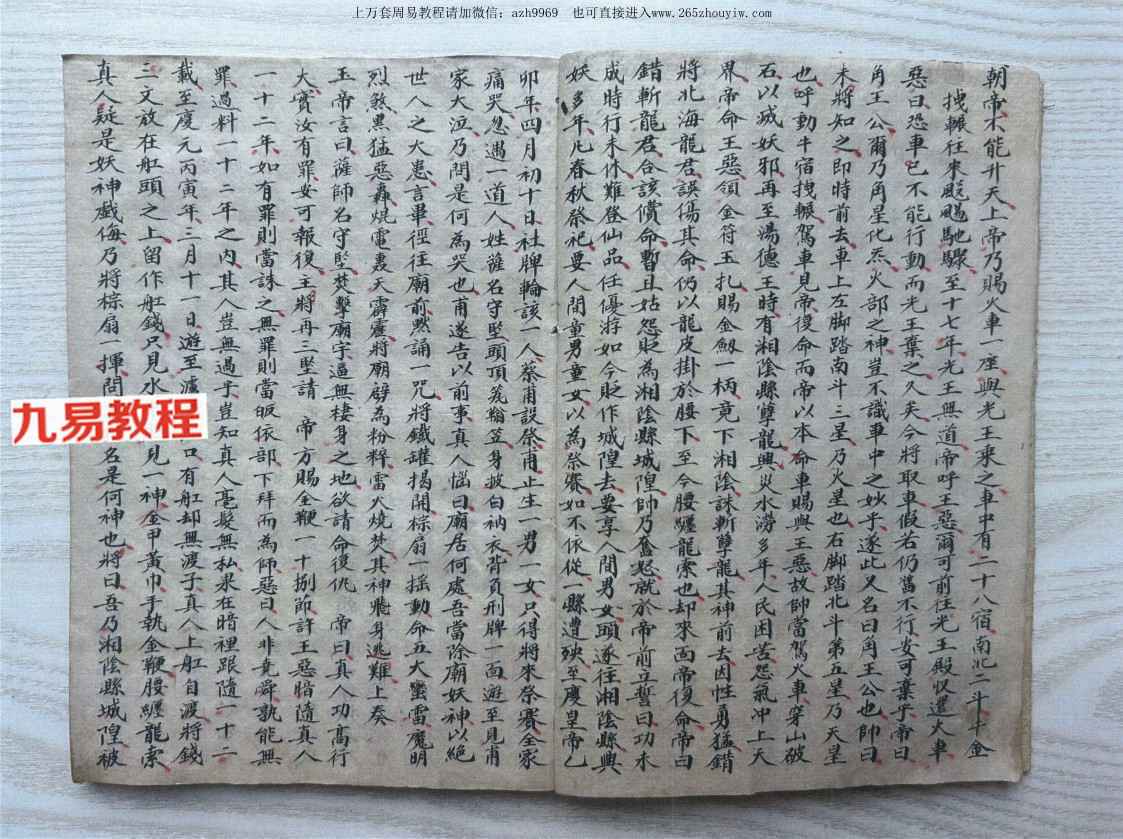 上万套周易教程请加微信：azh9969　也可直接进入www.265zhouyiw.com
朝帝不能升天上帝乃賜火車一座與光王乘之車中有二十八宿南北二斗斗金
拽輾往來颩颺馳驟至十七年光王無道帝呼王惡爾可前往光王殿収還火車
惡曰恐車已不能行動而光王棄之久矣今將取車假若仍舊不行安可棄乎帝曰
角王公爾乃角星化炁火部之神豈不識車中之妙乎遂此又名曰角王公也帥曰
未將知之即時前去車上左脚踏南斗三星乃火星也右脚踏北斗第五星乃天罡
也呼動牛宿拽輾駕車見帝復命而帝以本命車賜與王惡故帥當駕火車穿山破
石以滅妖邪再至湯德王時有湘陰縣孽龍興災水澇多年人民困苦怨氣冲上天
界帝命王惡領金符玉扎賜金劔一柄竟下湘陰誅斬孽龍其神前去因性勇猛錯
將北海龍君誤傷其命仍以龍皮掛於腰下至今腰纏龍索也却來面帝復命帝曰
錯斬龍君合該償命暫且姑恕貶為湘陰縣城隍帥乃奮怒就於帝前立誓曰功未
成時行未休難登仙品任優游如今貶作城隍去要享人間男女頭遂往湘陰縣興
妖多年凡春秋祭祀要人間童男童女以為祭賽如不依從一縣遭殃至慶皇帝乙
卯年四月初十日社牌輪該一人蔡甫設祭甫止生一男一女只得將來祭賽全家
痛哭忽遇一道人姓薩名守堅頭頂笠身披白衲衣背負刑牌一面遊至見甫
家大泣乃問是何為哭也甫遂告以前事真人惱曰廟居何處吾當除廟妖神以絶
世人之大患言畢徑往廟前黙誦一咒將鐵罐揭開棕扇一摇動命五大蠻雷魔明
烈煞黑猛惡轟焜電裹天霹靂將廟劈為粉粹雷火燒焚其神飛身逃難上奏
玉帝言曰薩師名守堅焚擊廟宇逼無棲身之地欲請命復仇　帝曰真人功高行
大實汝有罪安可報復王將再三堅請　帝方賜金鞭一十捌節許王惡暗隨真人
一十二年如有罪則當誅之無罪則當皈依部下拜而為師惡曰人非堯舜孰能無
罪過料一十二年之内其人豈無過乎豈知真人毫髮無私果在暗裡跟隨一十二
載至慶元丙寅年三月十一日遊至口有舡却無渡子真人上舡自渡將錢
三文放在舡頭之上留作舡錢只見水見一神金甲黃巾手執金鞭腰纏龍索
真人疑是妖神戲侮乃將棕扇一揮問名是何神也將曰吾乃湘陰縣城隍被
九易教程